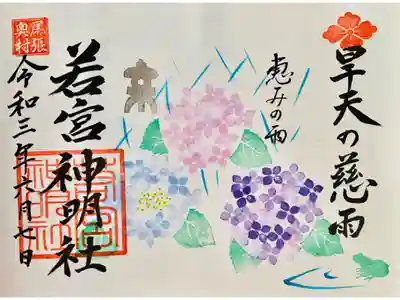 旱天の慈雨
恵みの雨
若宮神明社
尾張
奥村
令和三年六月七日